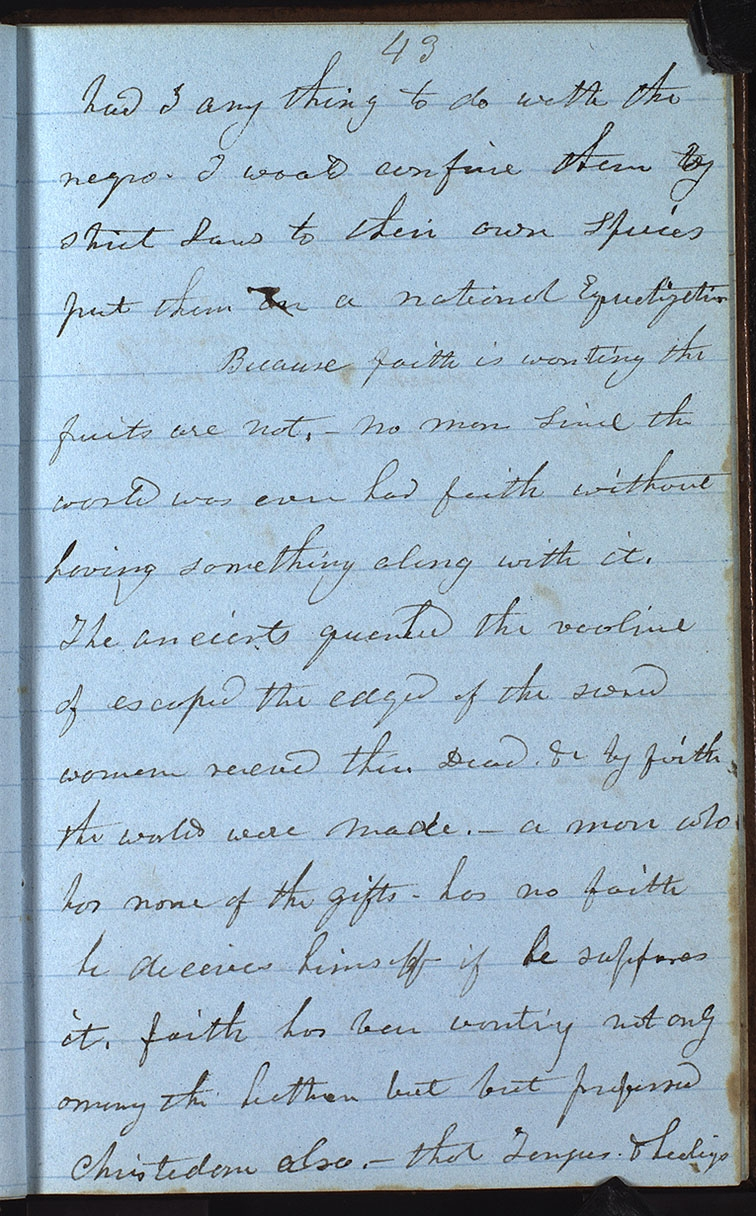 43
had I any thing to do with the
negro. I would confine them by
strict Laws to their own Species
put them on a national Equalization
Because faith is wanting the
fruits are not. - no man since the
world was ever had faith without
having something along with it.
The ancients quenched the voolince
of escaped the edged of the sword
women receved their Dead. &c by faith
the worlds were made. - a man who
has none of the gifts - has no faith
he deceives himself if he supposes
it. faith has been wanting not only
among the heathen but but proffessed
Christedom also. - that Tongues. & healings